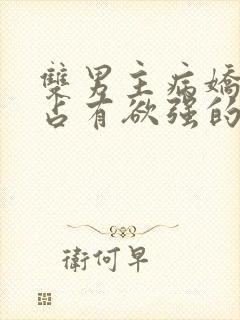 雙男主病嬌
占有欲強的
衛何早